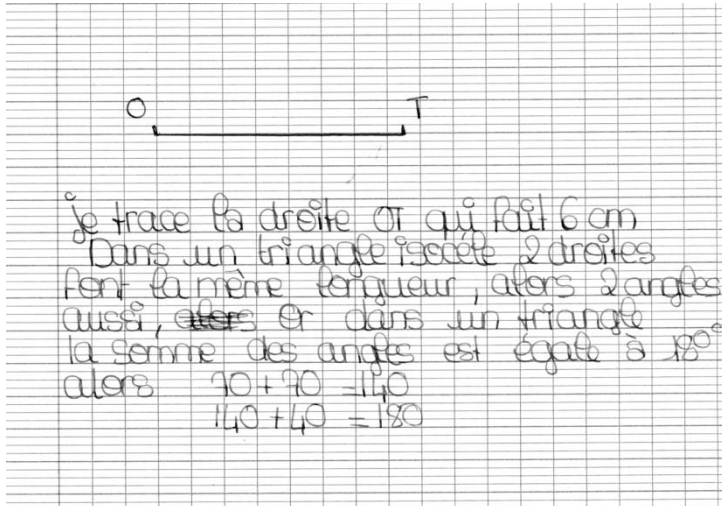 O T
je trace la droite OT qui fait 6 cm
Dans un triangle isocèle 2 droites
font la même longueur, alors 2 angles
aussi, Or dans un triangle
la somme des angles est égale à 180°
alors 70 + 70 = 140
140 + 40 = 180